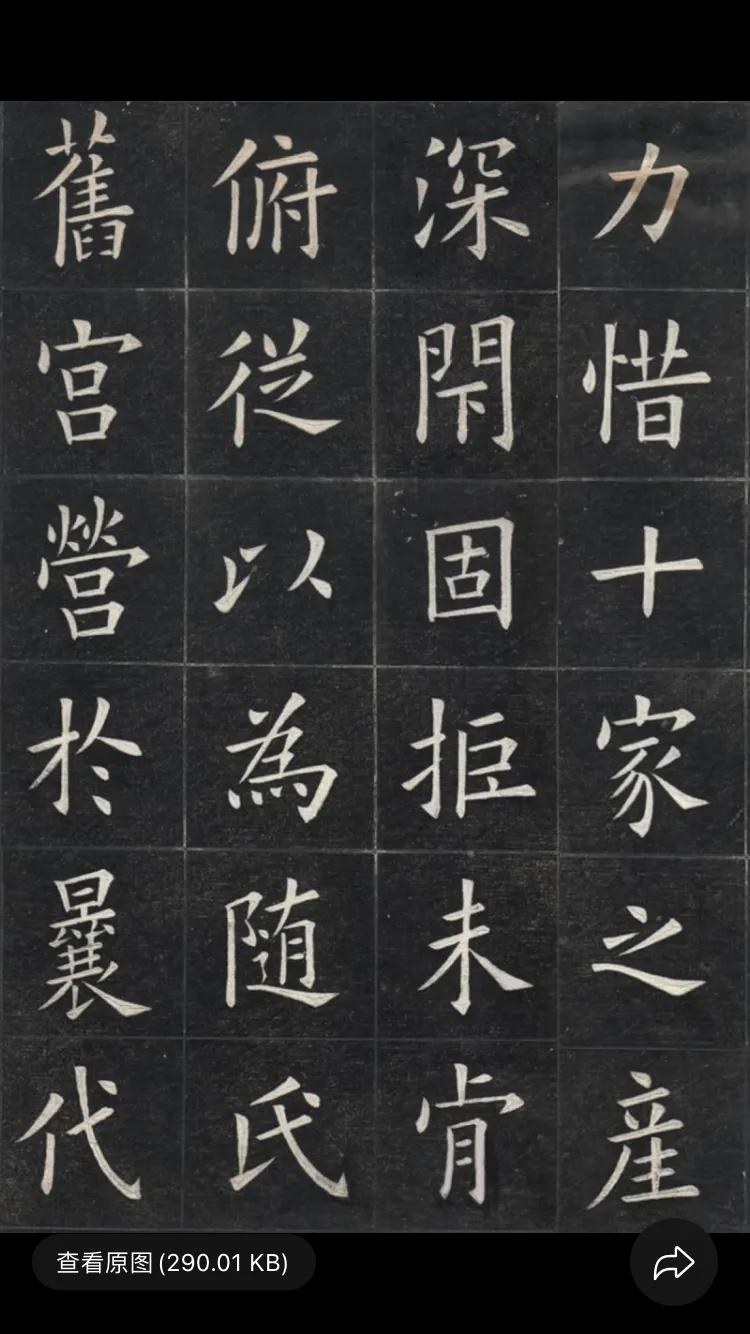 力惜十家之産
深閇固拒未肯
俯従以為随氏
舊宮營於曩代
查看原图 (290.01 KB)